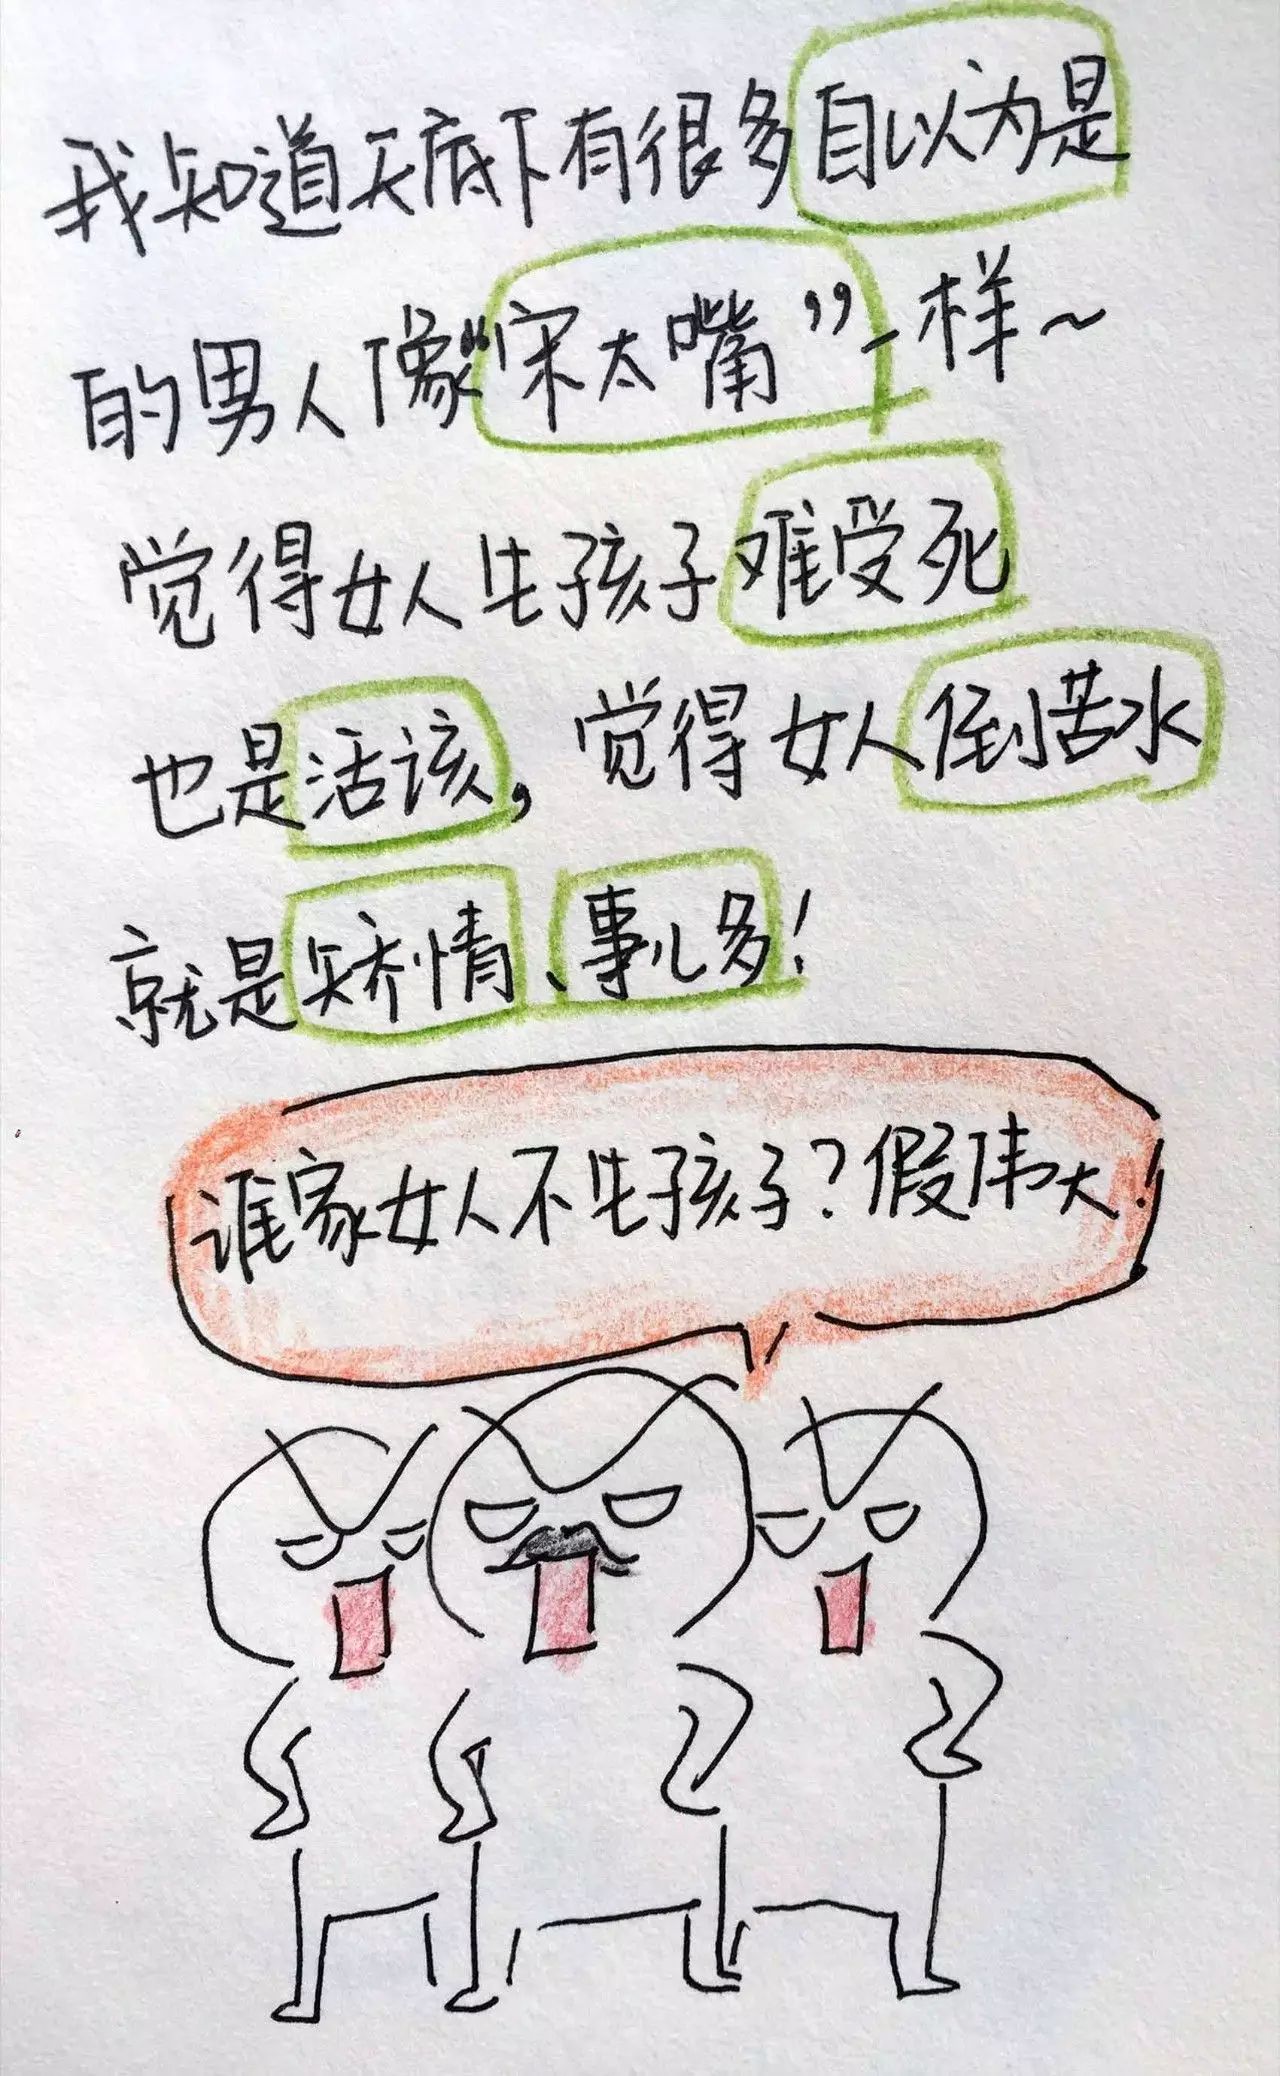 我知道天底下有很多自以为是
的男人像“宋太嘴”一样～
觉得女人生孩子难受死
也是活该，觉得女人倒苦水
就是矫情、事儿多！
谁家女人不生孩子？假伟大！